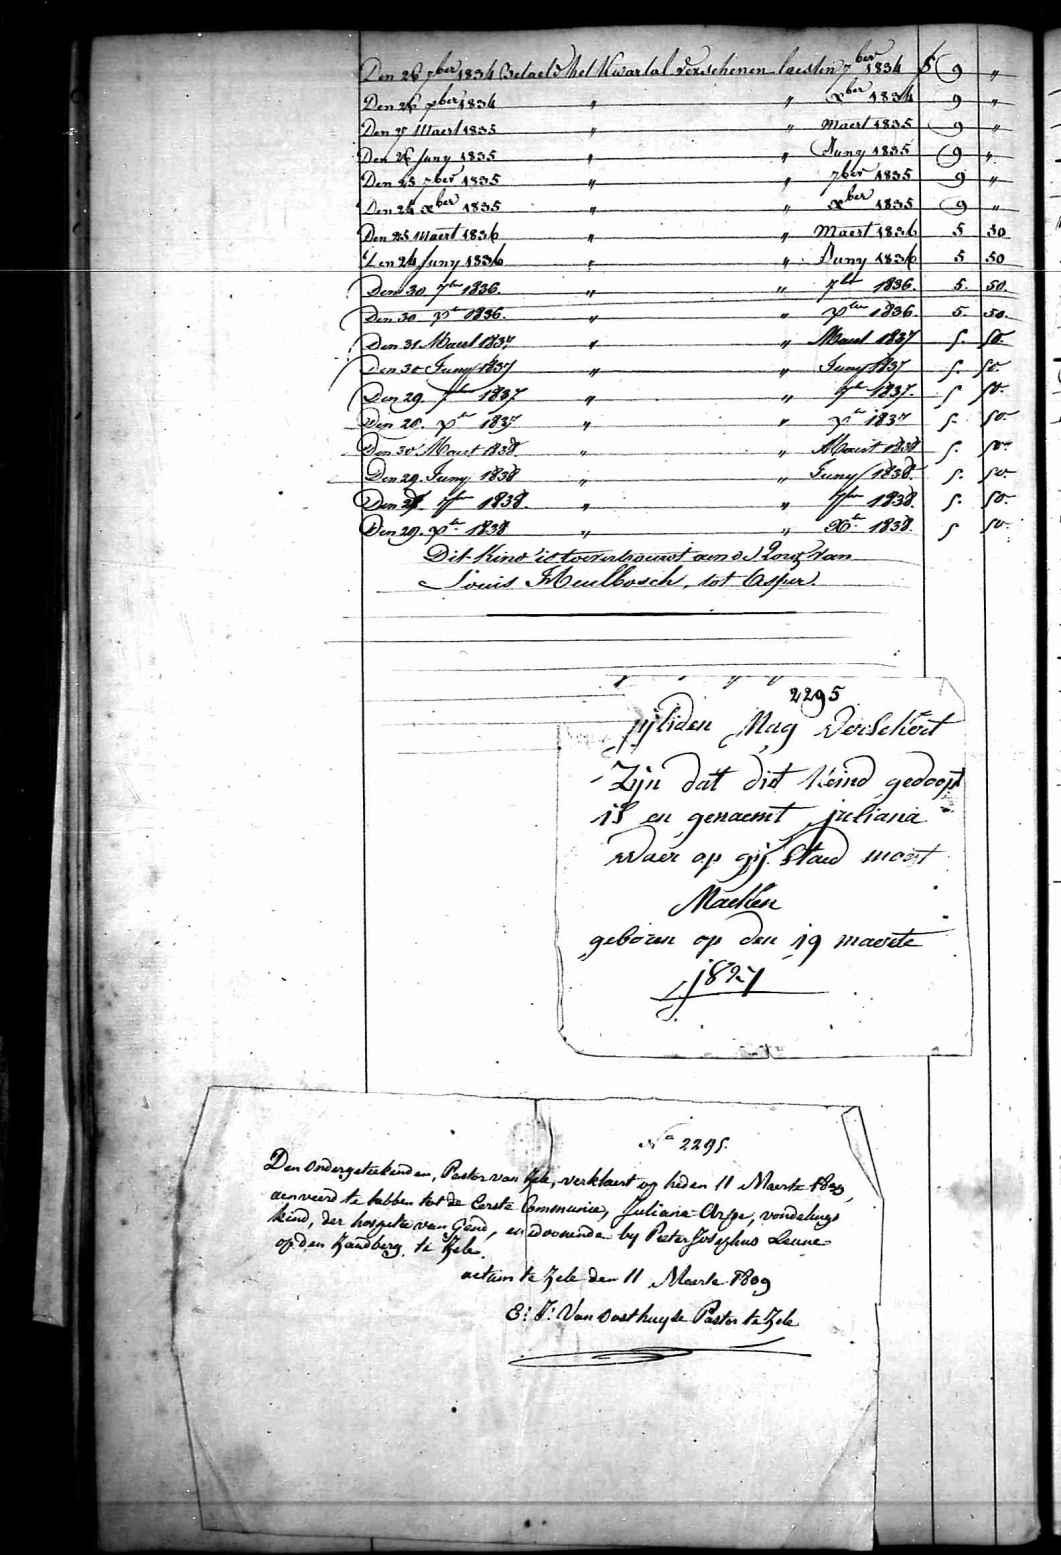 Den 26 7ber 1834 Betaeld het Kwartal verschenen laesten 7ber 1834 9 "
Den 26 xber 1834 " " xber 1834 9 "
Den Maert 1835 " " Maert 1835 9 "
Den 26 Juny 1835 " " Juny 1835 9 "
Den 25 7ber 1835 " " 7ber 1835 9 "
Den 24 xber 1835 " " xber 1835 9 "
Den 25 Maert 1836 " " Maert 1836 5 50
Den 24 Juny 1836 " " Juny 1836 5 50
Den 30 7br 1836. " " 7br 1836. 5. 50.
Den 30 xbr 1836. " " xbr 1836 5. 50.
Den 31 Maert 1837 " " Maert 1837 5. 50.
Den 30 Juny 1837 " " Juny 1837 5. 50.
Den 29. 7br 1837 " " 7br 1837. 5 50.
Den 28. xbr 1837 " " xbr 1837 5. 50.
Den 30 Maert 1838. " " Maert 1838 5. 50.
Den 29. Juny 1838 " " Juny 1838. 5. 50.
Den 7br 1838. " " 7br 1838. 5. 50.
Den 29. xbr 1838 " " Xbr 1838. 5 50.
Dit Kind is toevertrouwt aen d van
Louis Meulbosch, tot Asper.
2295
Mag versekert
Zijn dat dit Keind gedoopt
is en genaemt juliana
waer op gij staed moet
Macken
geboren op den 19 maerte
1827
No 2295.
Den ondergeteekenden, Pastor van Zele, verklaert op heden 11 Maerte 1839,
aenveerd te hebben tot de Eerste Communie, Juliana Arpe, vondelings
kind, der hospitie van Gend, en woonende by Pieter Josephus Leune
op den Zandberg, te Zele.
actum te Zele den 11 Maerte 1839
E: J: Van Oosthuyse Pastor te Zele